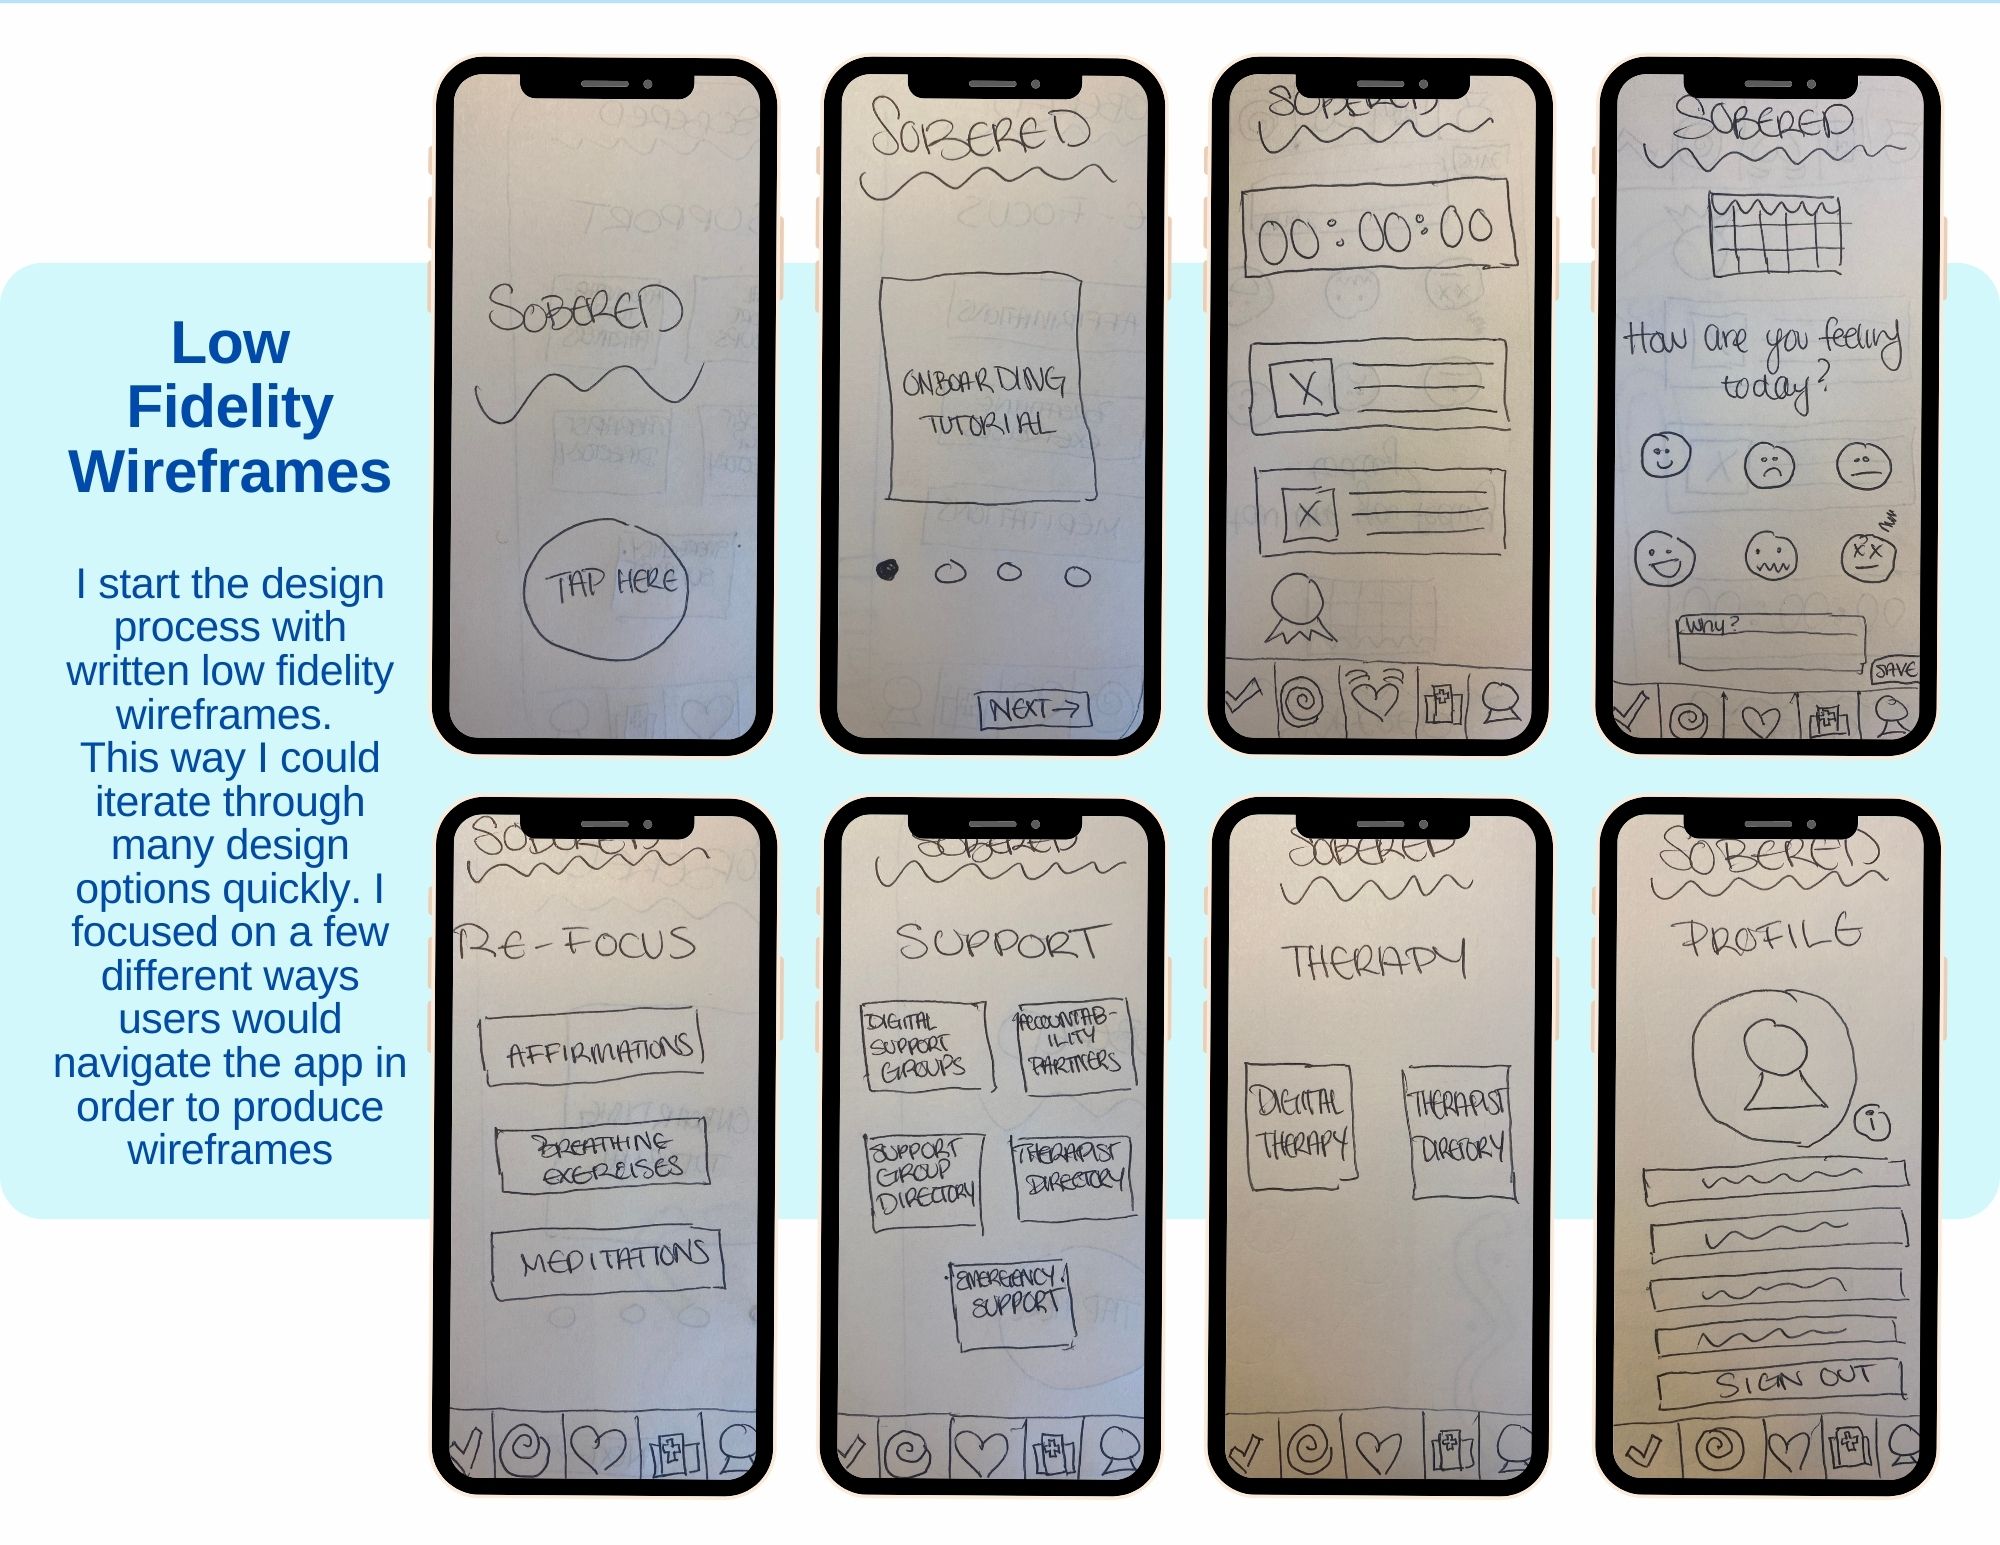 Low
Fidelity
Wireframes
I start the design
process with
written low fidelity
wireframes.
This way I could
iterate through
many design
options quickly. I
focused on a few
different ways
users would
navigate the app in
order to produce
wireframes
SOBERED
TAP HERE
SOBERED
ONBOARDING
TUTORIAL
NEXT →
SOBERED
00:00:00
X
X
SOBERED
How are you feeling
today?
Why?
SAVE
SOBERED
RE-FOCUS
AFFIRMATIONS
BREATHING
EXERCISES
MEDITATIONS
SOBERED
SUPPORT
DIGITAL
SUPPORT
GROUPS
ACCOUNTAB-
ILITY
PARTNERS
SUPPORT
GROUP
DIRECTORY
THERAPIST
DIRECTORY
EMERGENCY
SUPPORT
SOBERED
THERAPY
DIGITAL
THERAPY
THERAPIST
DIRETORY
SOBERED
PROFILE
i
SIGN OUT